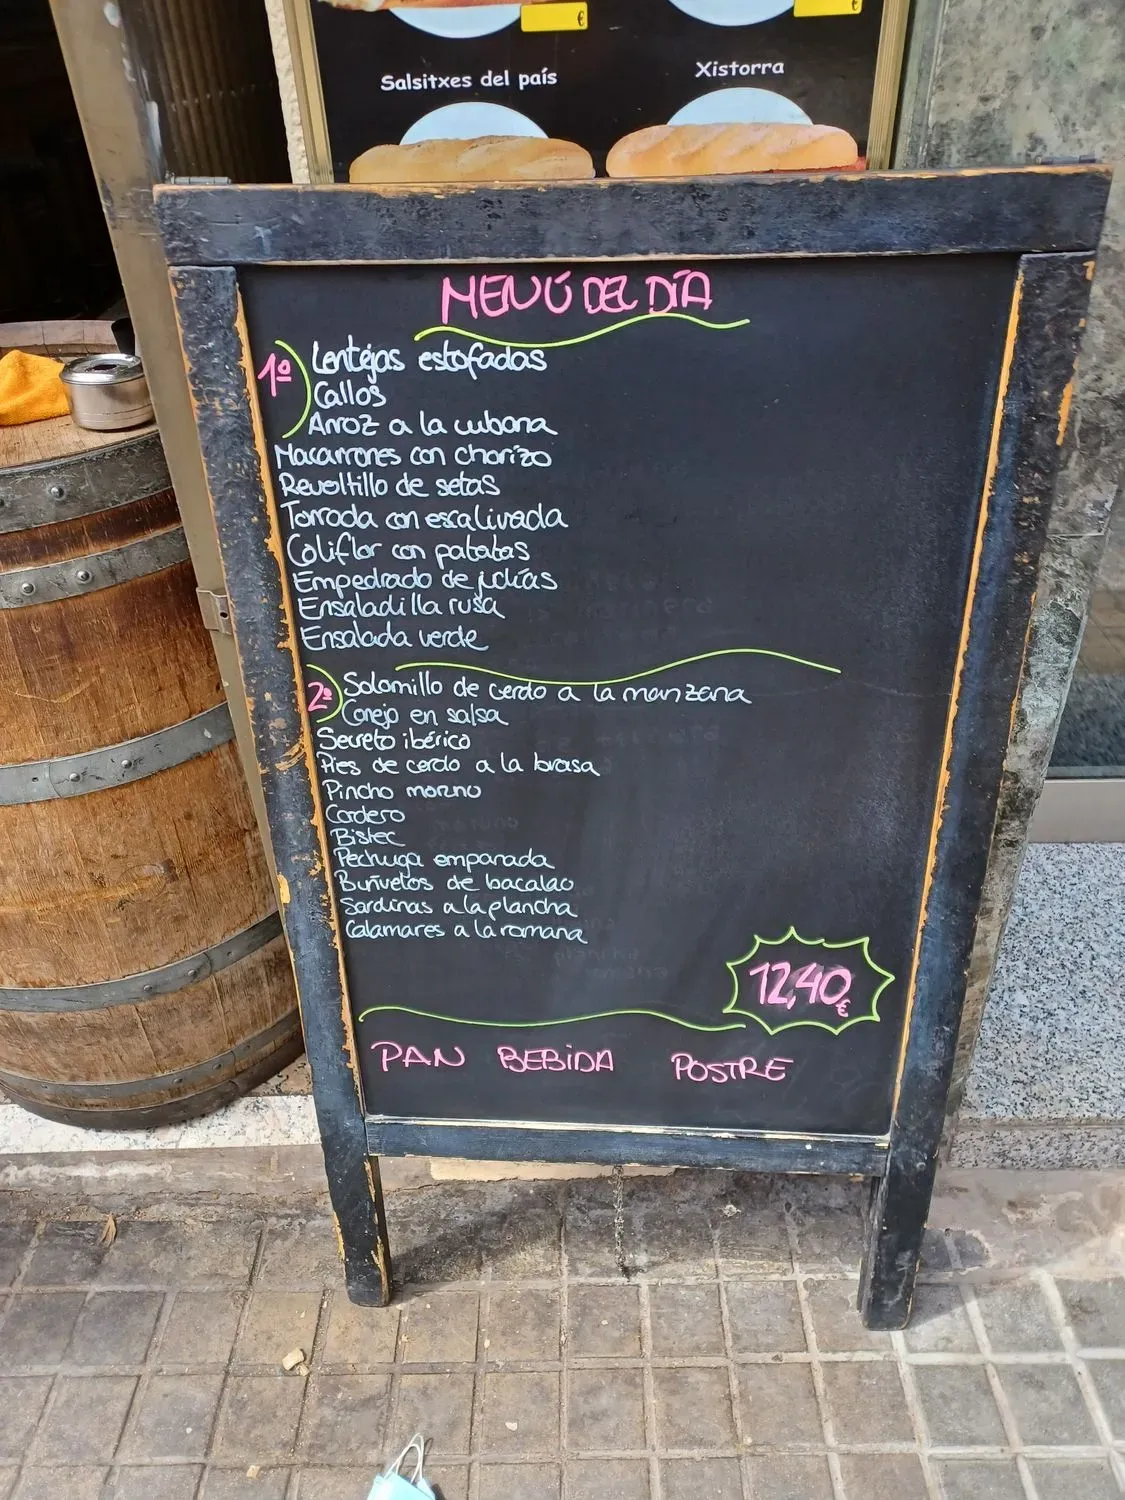 €
€
Salsitxes del país
Xistorra
MENÚ DEL DÍA
1º Lentejas estofadas
Callos
Arroz a la cubana
Macarrones con chorizo
Revoltillo de setas
Torrada con escalivada
Coliflor con patatas
Empedrado de judías
Ensaladilla rusa
Ensalada verde
2º Solomillo de cerdo a la manzana
Conejo en salsa
Secreto ibérico
Pies de cerdo a la brasa
Pincho moruno
Cordero
Bistec
Pechuga empanada
Buñuelos de bacalao
Sardinas a la plancha
Calamares a la romana
12,40€
PAN BEBIDA POSTRE